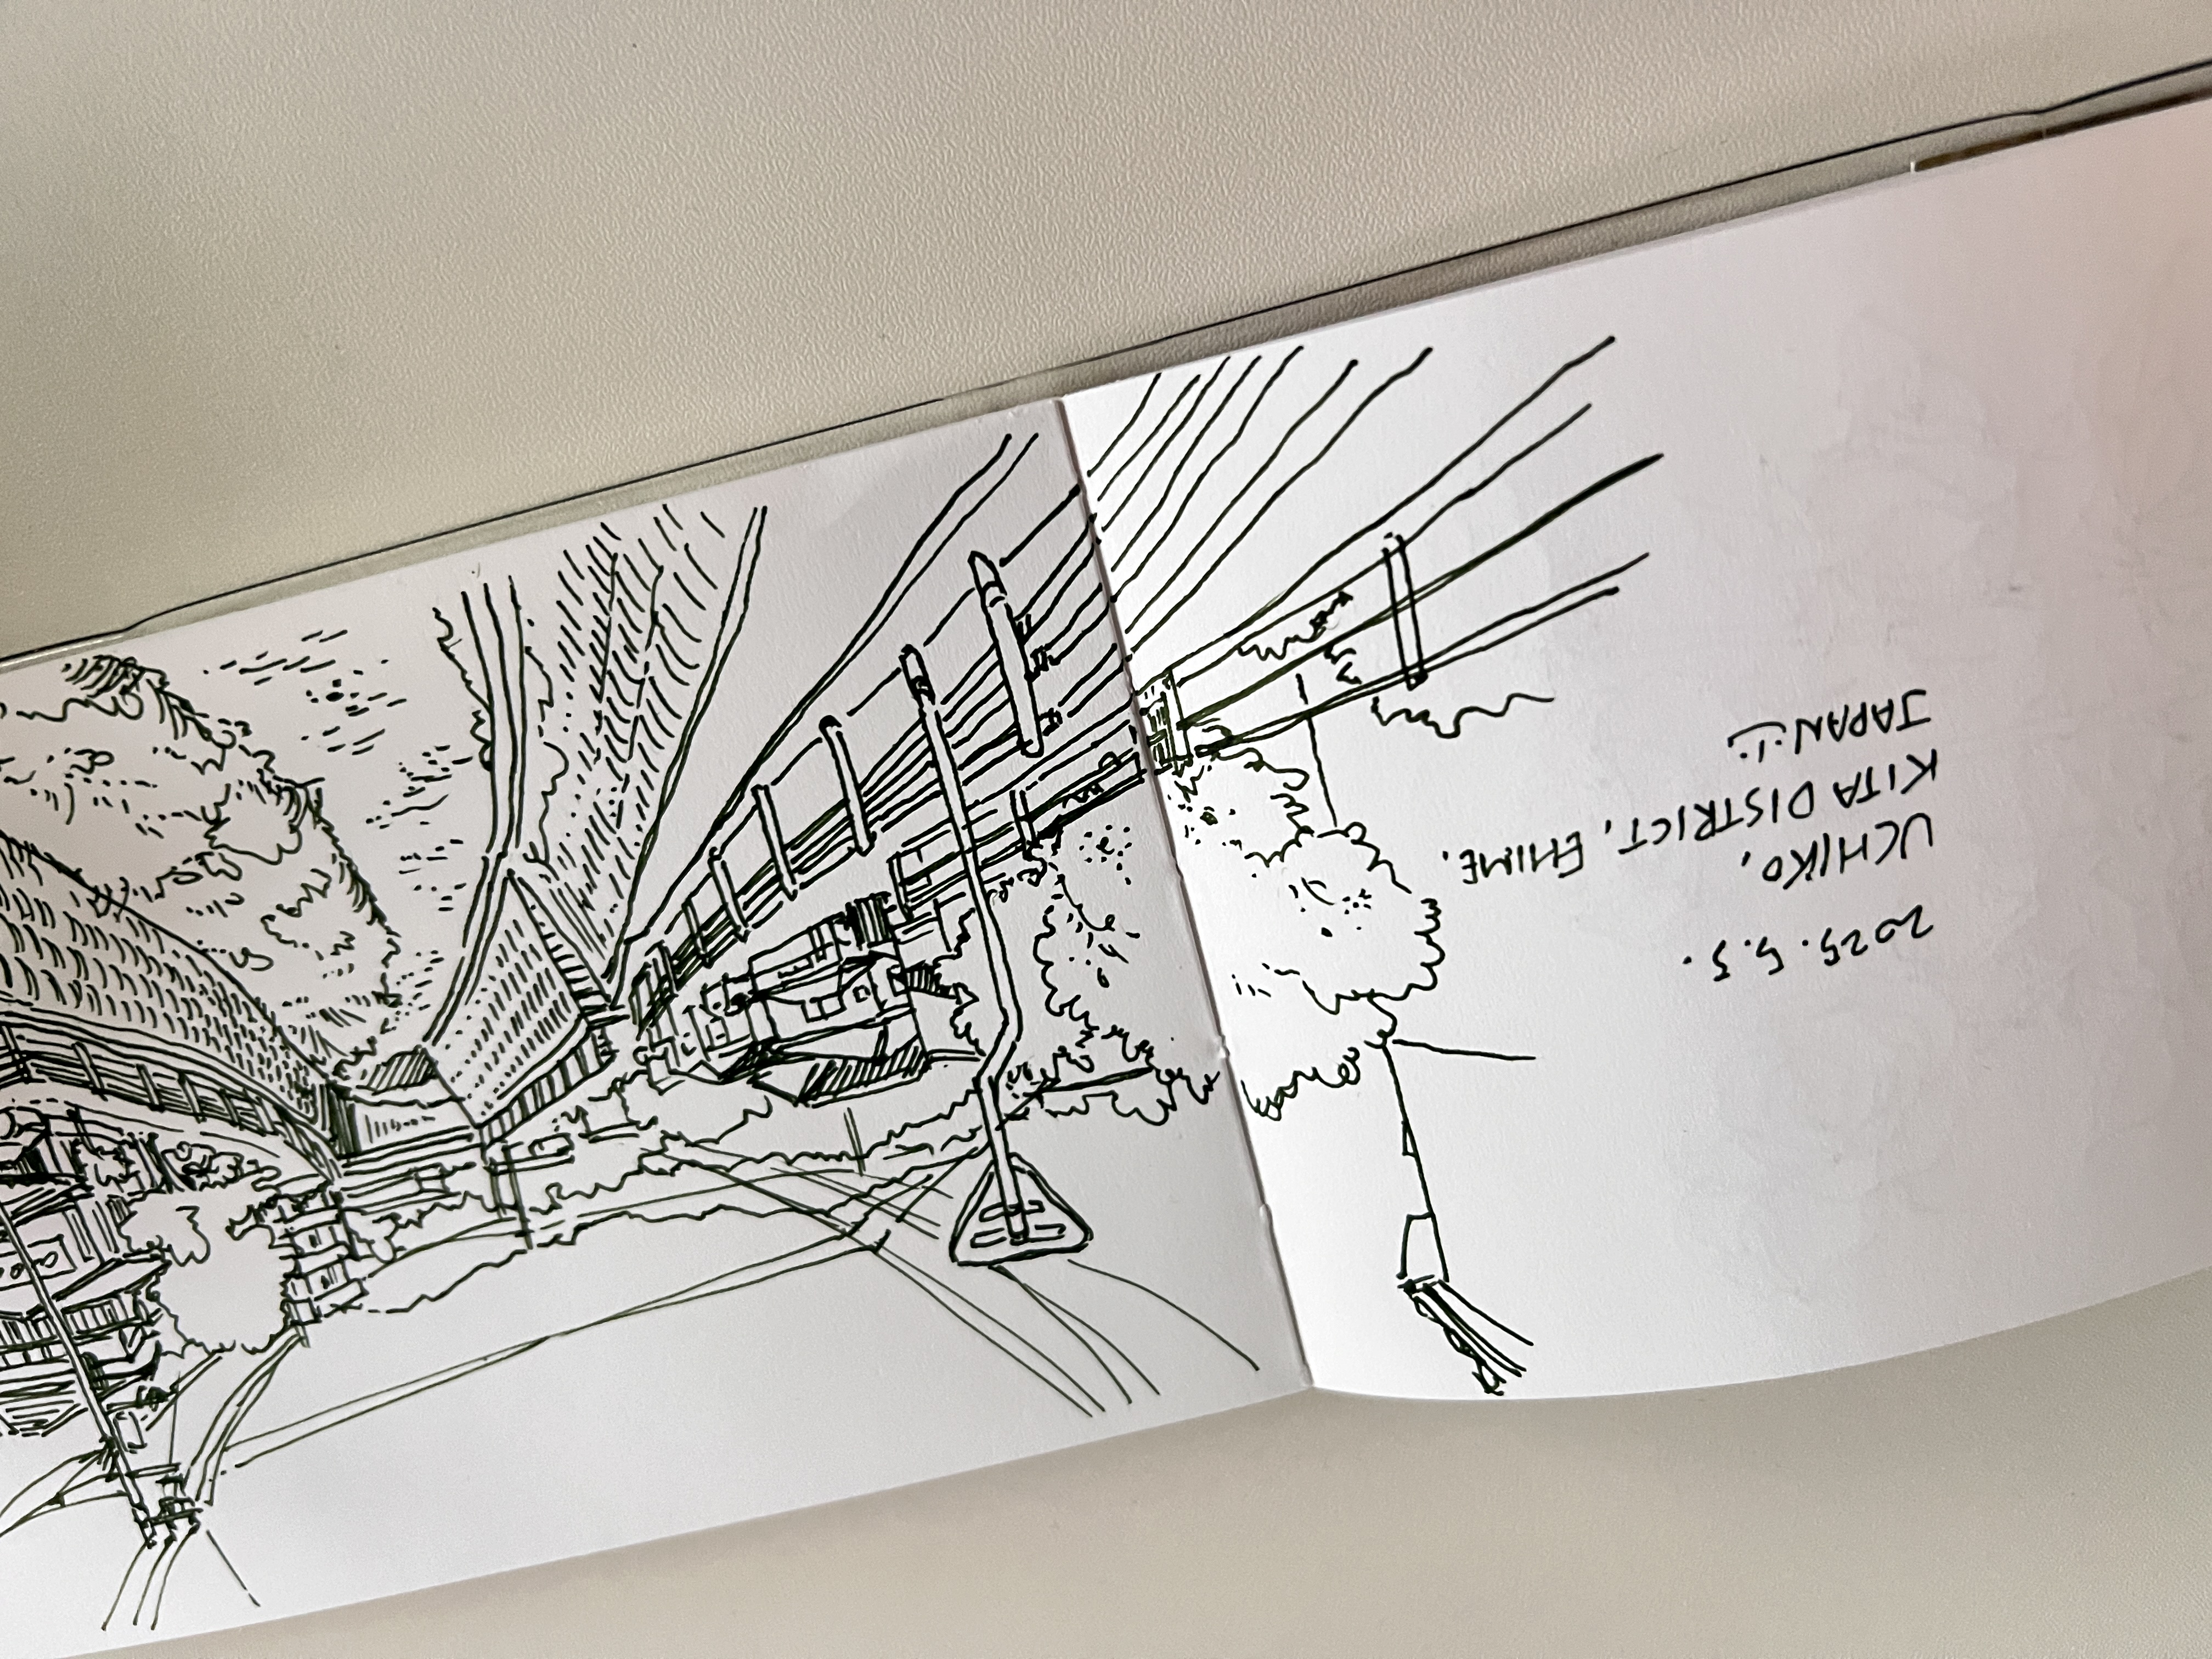 2025. 5.5.
UCHIKO,
KITA DISTRICT, EHIME,
JAPAN :)